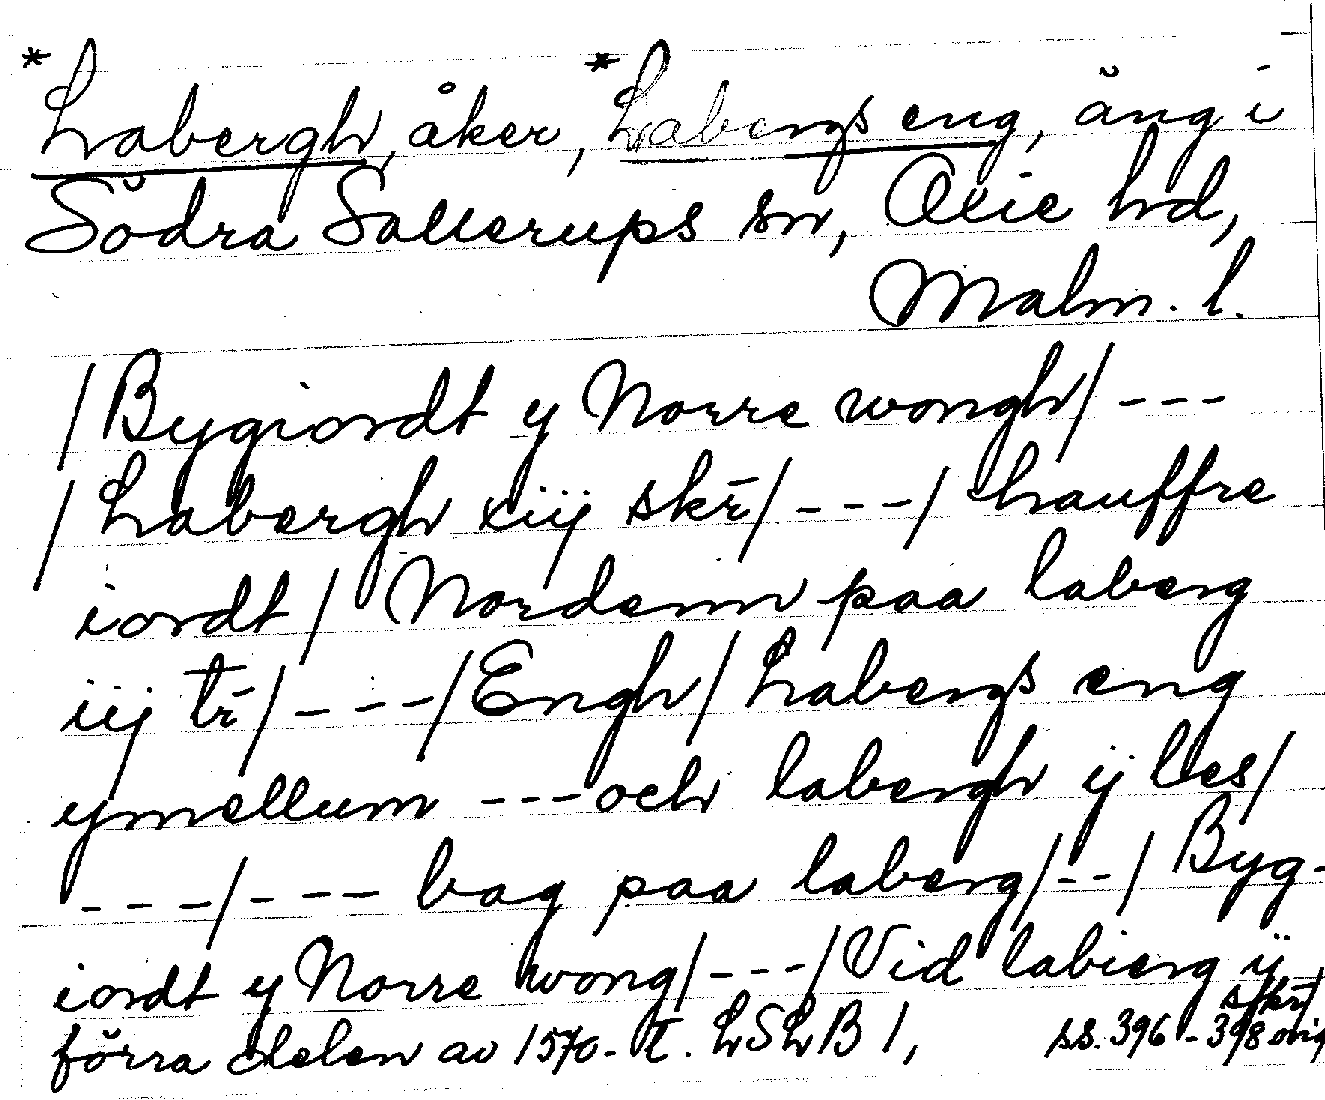 *Labergh, åker, *Labergs eng, äng i
Södra Sallerups sn, Oxie hd,
Malm. l.
/Bygiordt y Norre wongh/ ---
/Labergh xiij skr̄/ ---/ hauffre
iordt/ Nordenn paa laberg
iij tr̄/ ---/Engh/ Labergs eng
ymellum --- och labergh ij les/
---/--- bag paa laberg/--/ Byg-
iordt y Norre wong/---/Vid labierg ij
skr̄/
förra delen av 1570-t. LSLB 1, ss. 396-398 orig